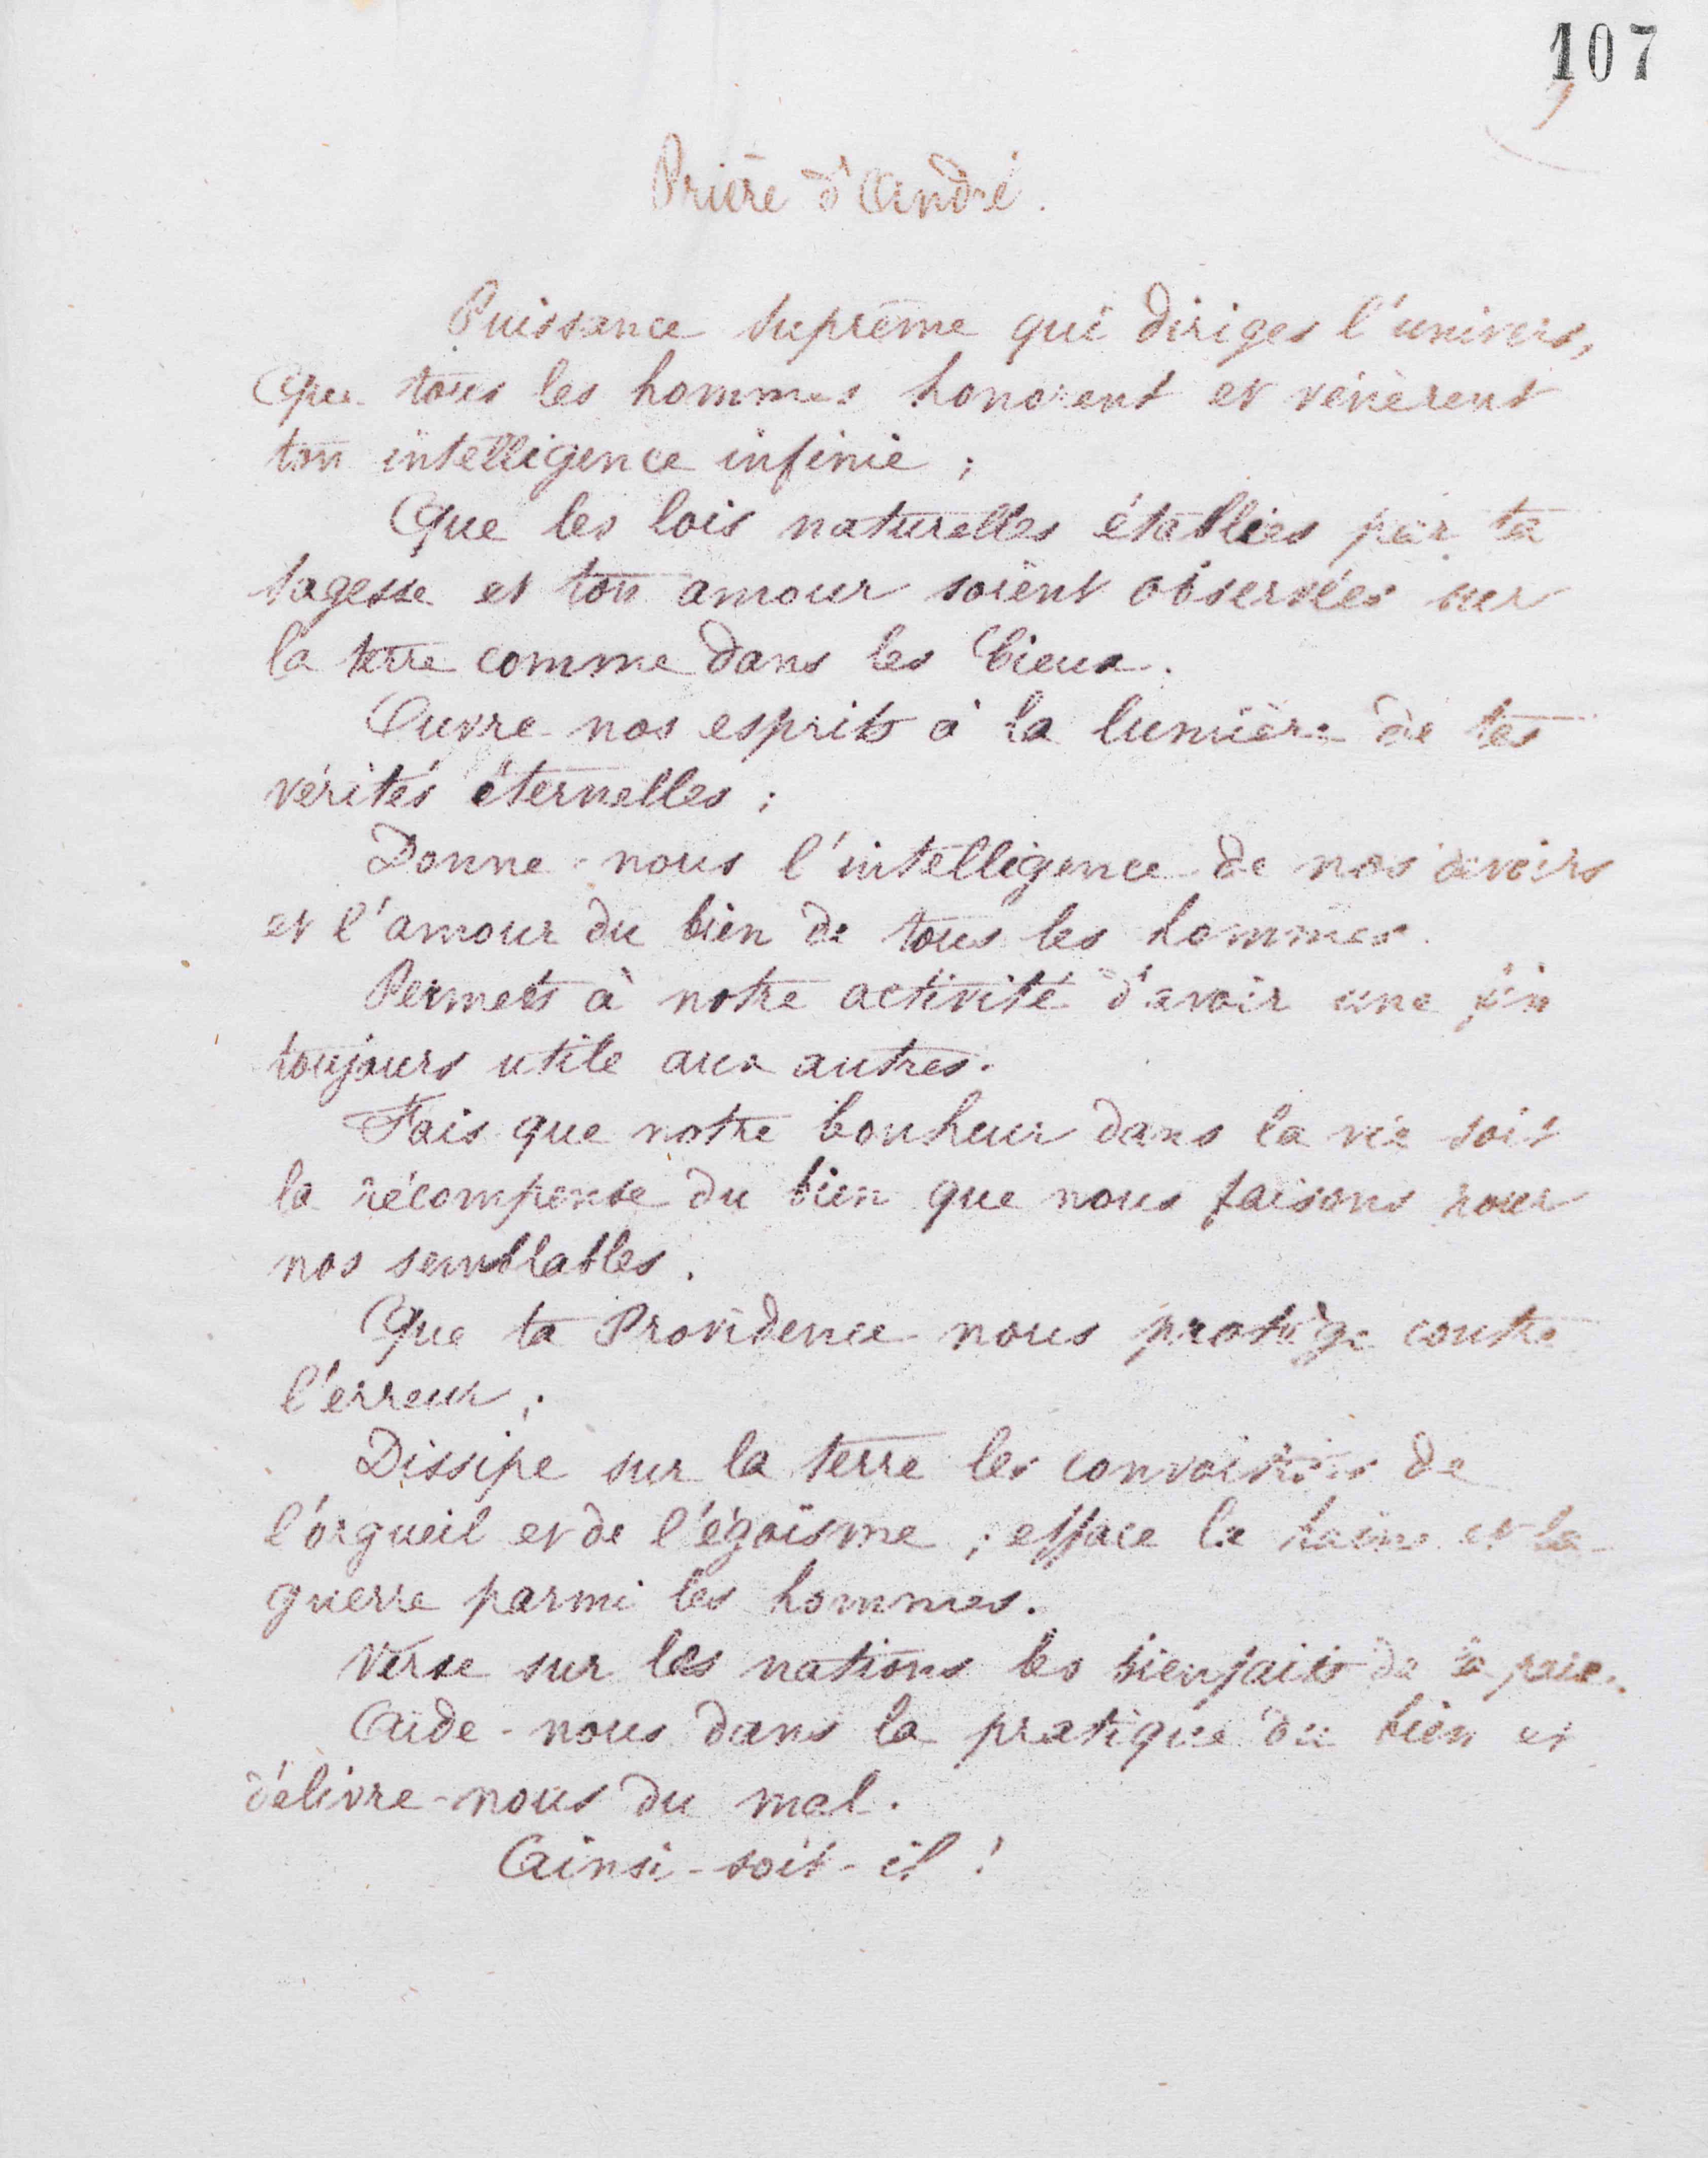 107
Prière d'André.
Puissance suprême qui diriges l'univers,
Que tous les hommes honorent et vénèrent
ton intelligence infinie ;
Que les lois naturelles établies par ta
sagesse et ton amour soient observées sur
la terre comme dans les Cieux.
Ouvre nos esprits à la lumière de tes
vérités éternelles ;
Donne-nous l'intelligence de nos devoirs
et l'amour du bien de tous les hommes.
Permets à notre activité d'avoir une fin
toujours utile aux autres.
Fais que notre bonheur dans la vie soit
la récompense du bien que nous faisons pour
nos semblables.
Que ta Providence nous protège contre
l'erreur ;
Dissipe sur la terre les convoitises de
l'orgueil et de l'égoïsme ; efface la haine et la
guerre parmi les hommes.
Verse sur les nations les bienfaits de la paix.
Aide-nous dans la pratique du bien et
délivre-nous du mal.
Ainsi-soit-il !